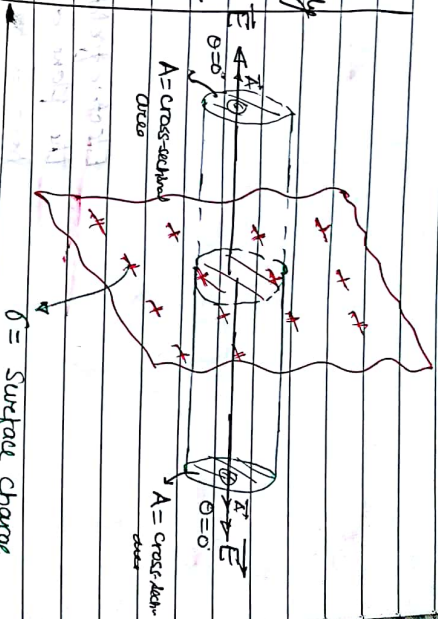 E
θ=0°
A
A = cross-sectional
area
A
E
θ=0°
A = cross-secti-
area
σ = Surface charge